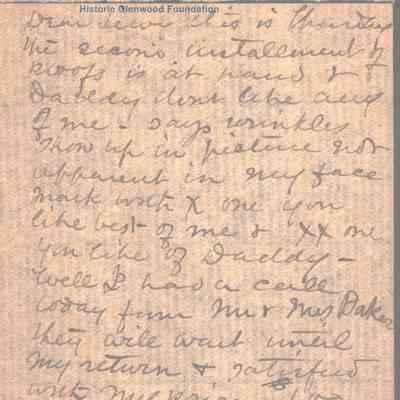 Historic Glenwood Foundation
this is Thursday
the second installment of
proofs is at hand &
Daddy dont like any
of me - says wrinkles
show up in picture not
apparent in my face
Mark with X one you
like best of me & XX one
you like of Daddy -
Well I had a call
today from Mr & Mrs Baker
they will wait until
my return & satisfied
with my